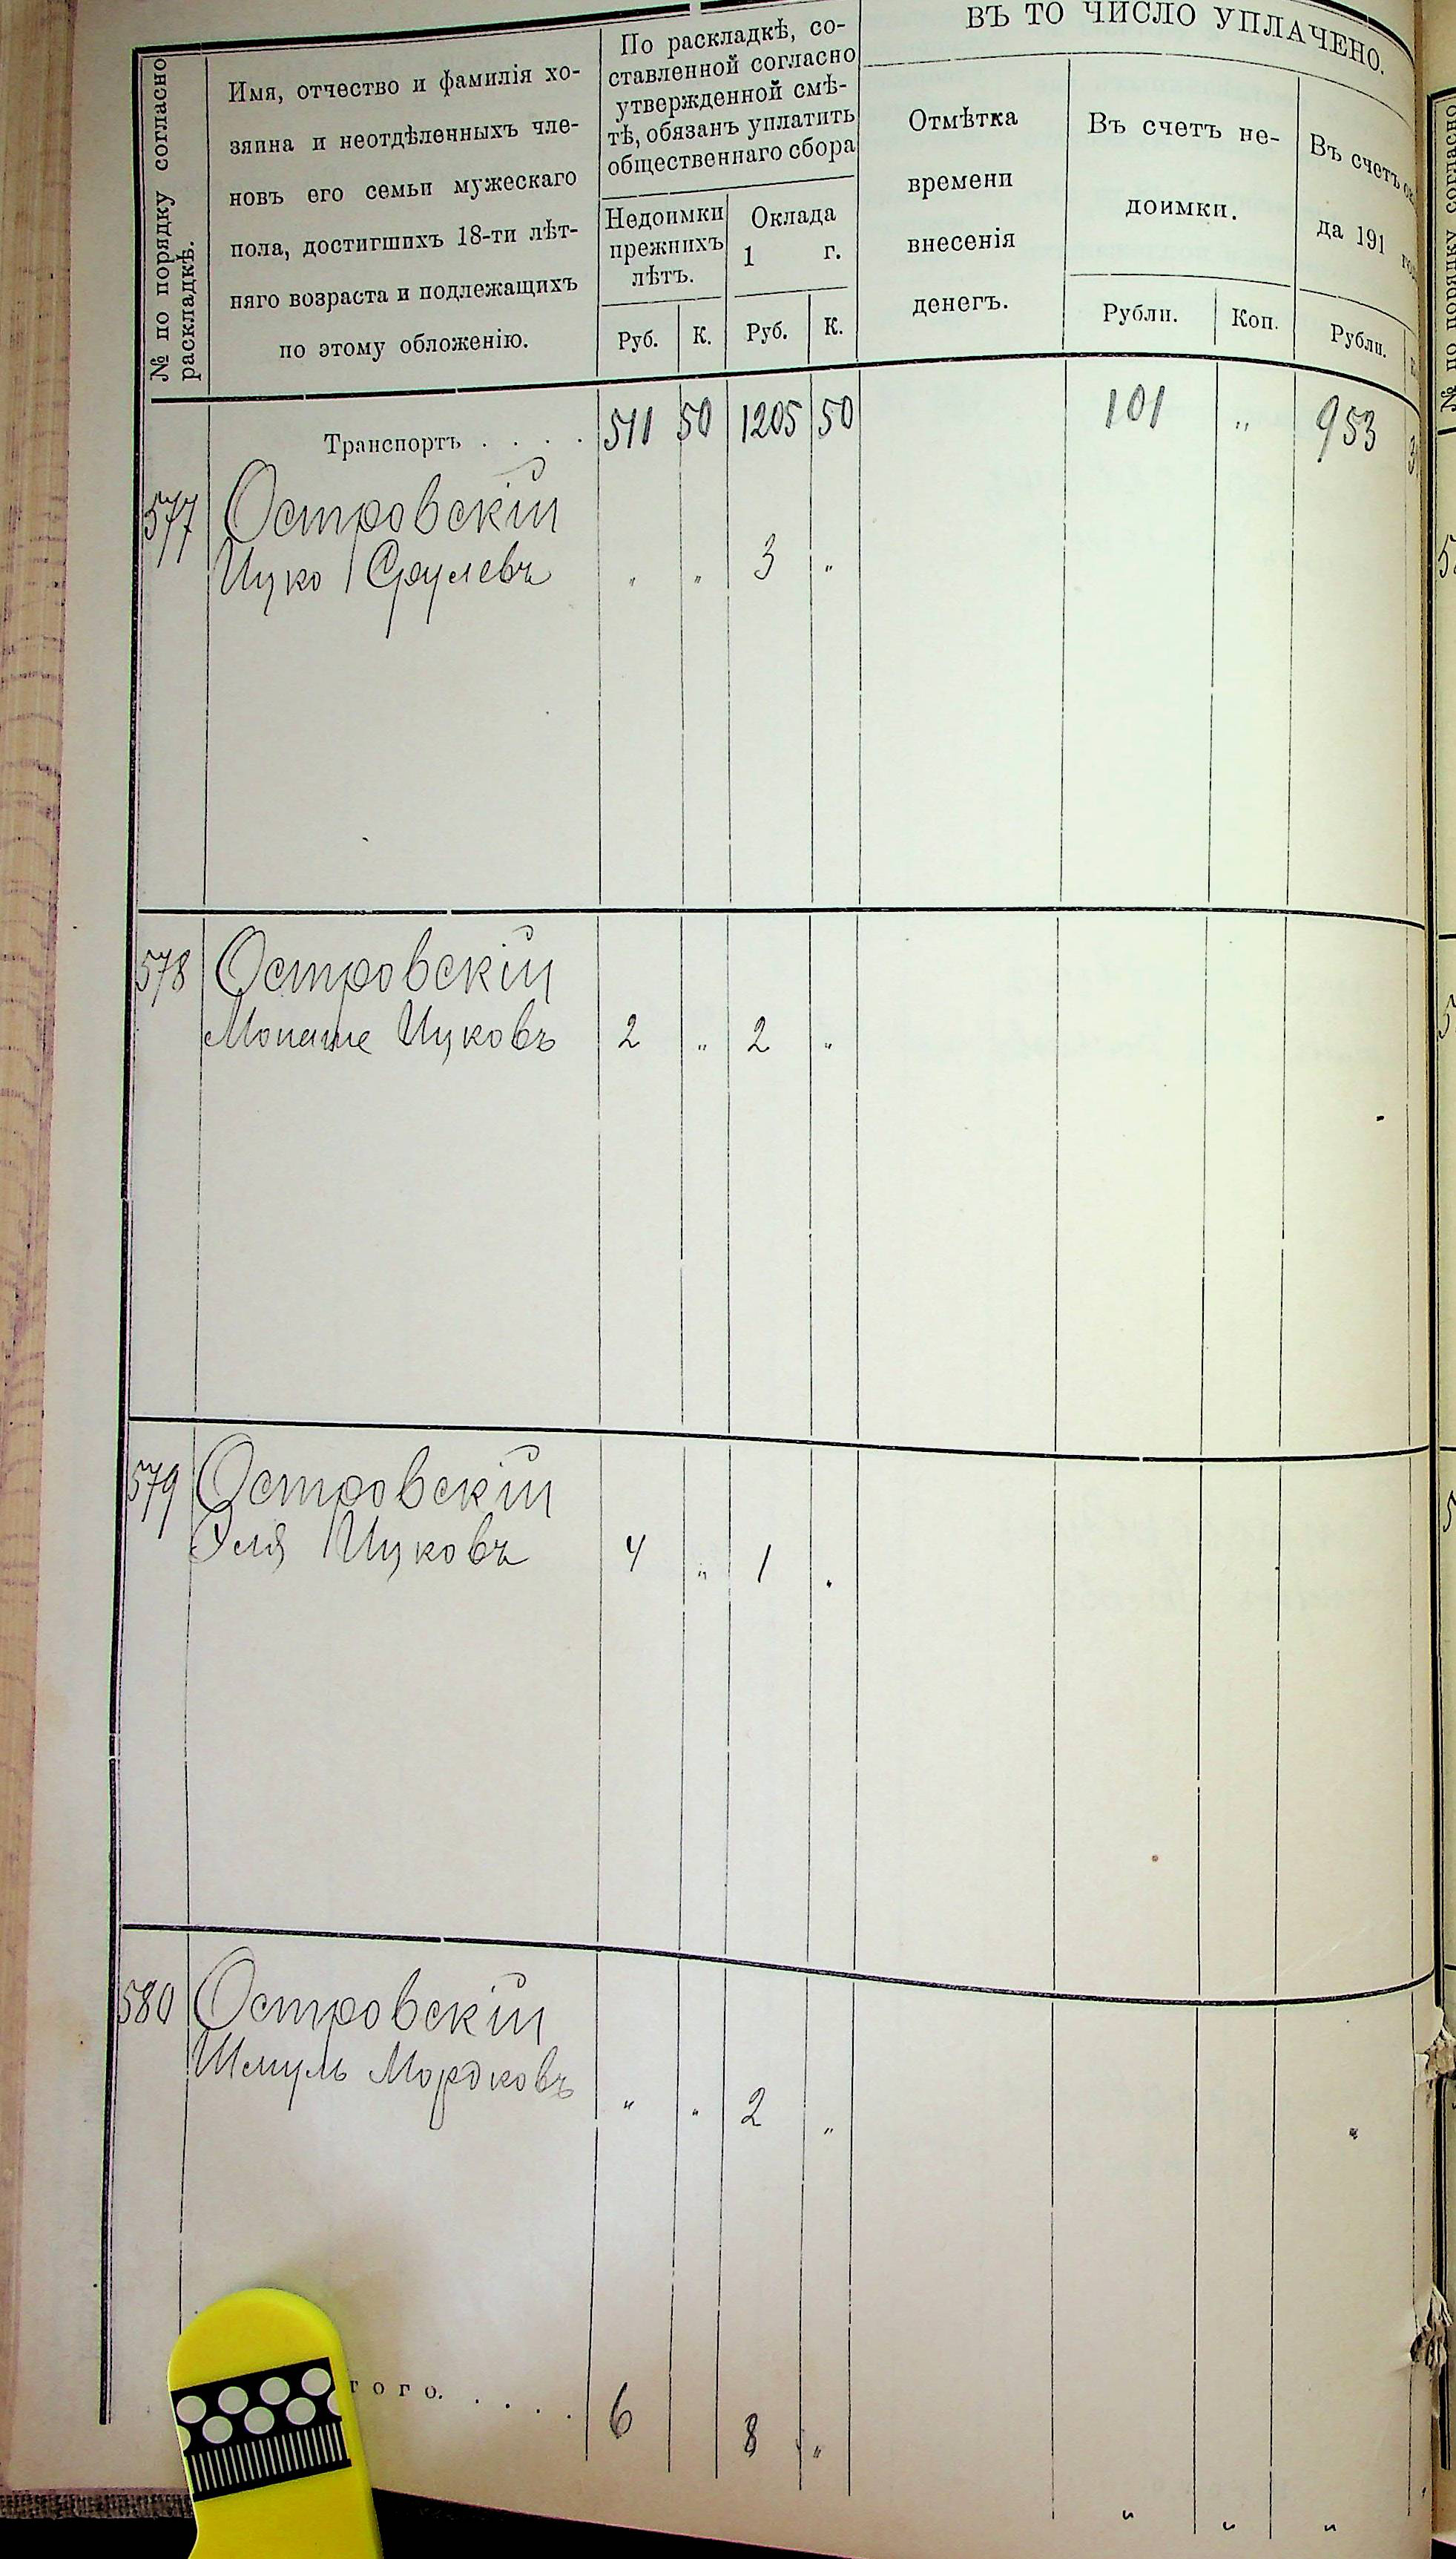 ВЪ ТО ЧИСЛО УПЛАЧЕНО.
№ по порядку согласно
раскладкѣ.
Имя, отчество и фамилія хо-
зяина и неотдѣленныхъ чле-
новъ его семьи мужескаго
пола, достигшихъ 18-ти лѣт-
няго возраста и подлежащихъ
по этому обложенію.
По раскладкѣ, со-
ставленной согласно
утвержденной смѣ-
тѣ, обязанъ уплатить
общественнаго сбора
Недоимки
прежнихъ
лѣтъ.
Оклада
1 г.
Руб. К. Руб. К.
Отмѣтка
времени
внесенія
денегъ.
Въ счетъ не-
доимки.
Рубли. Коп.
Въ счетъ
да 191
Рубли.
Транспортъ . . . . 511 50 1205 50 101 „ 953
577 Островскій
Ицко Срулевъ „ „ 3 „
578 Островскій
Монаше Ицковъ 2 „ 2 „
579 Островскій
Эля Ицковъ 4 „ 1 „
580 Островскій
Шмуль Мордковъ „ „ 2 „
того. . . . . 6 8 „
„ „ „
№ по порядку согласно